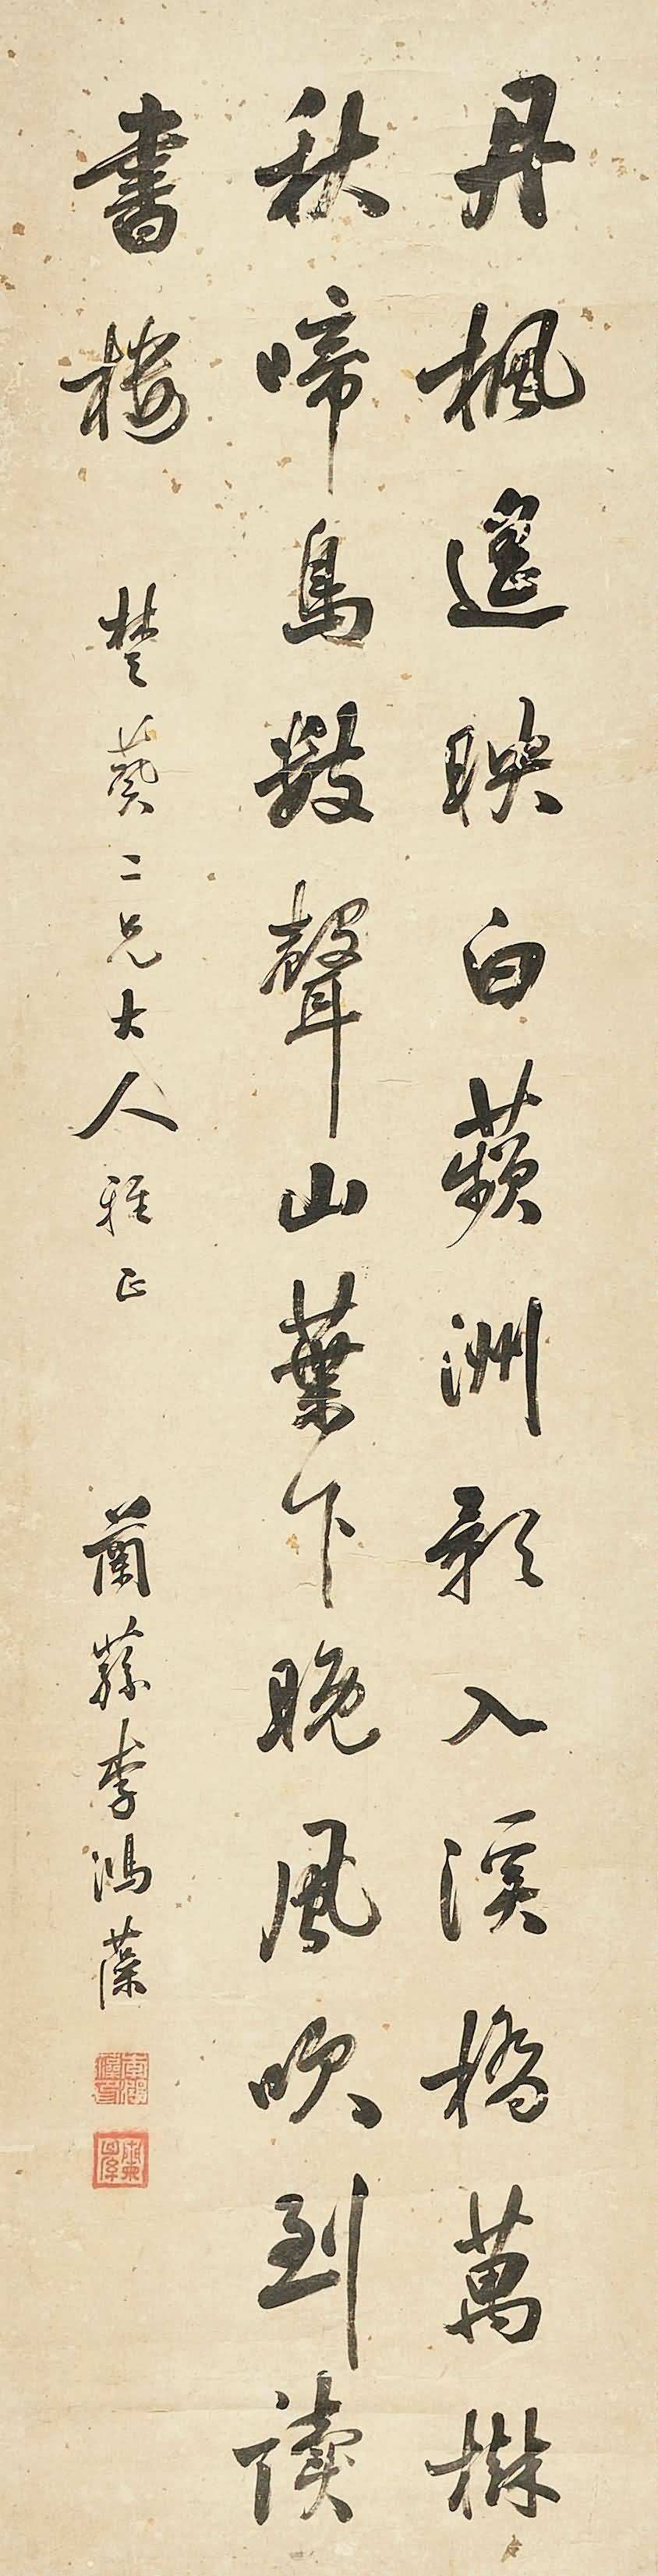 丹楓遙映白蘋洲影入溪橋萬樹
秋啼鳥數聲山葉下晚風吹到讀
書樓 楚葵二兄大人雅正 蘭蓀李鴻藻